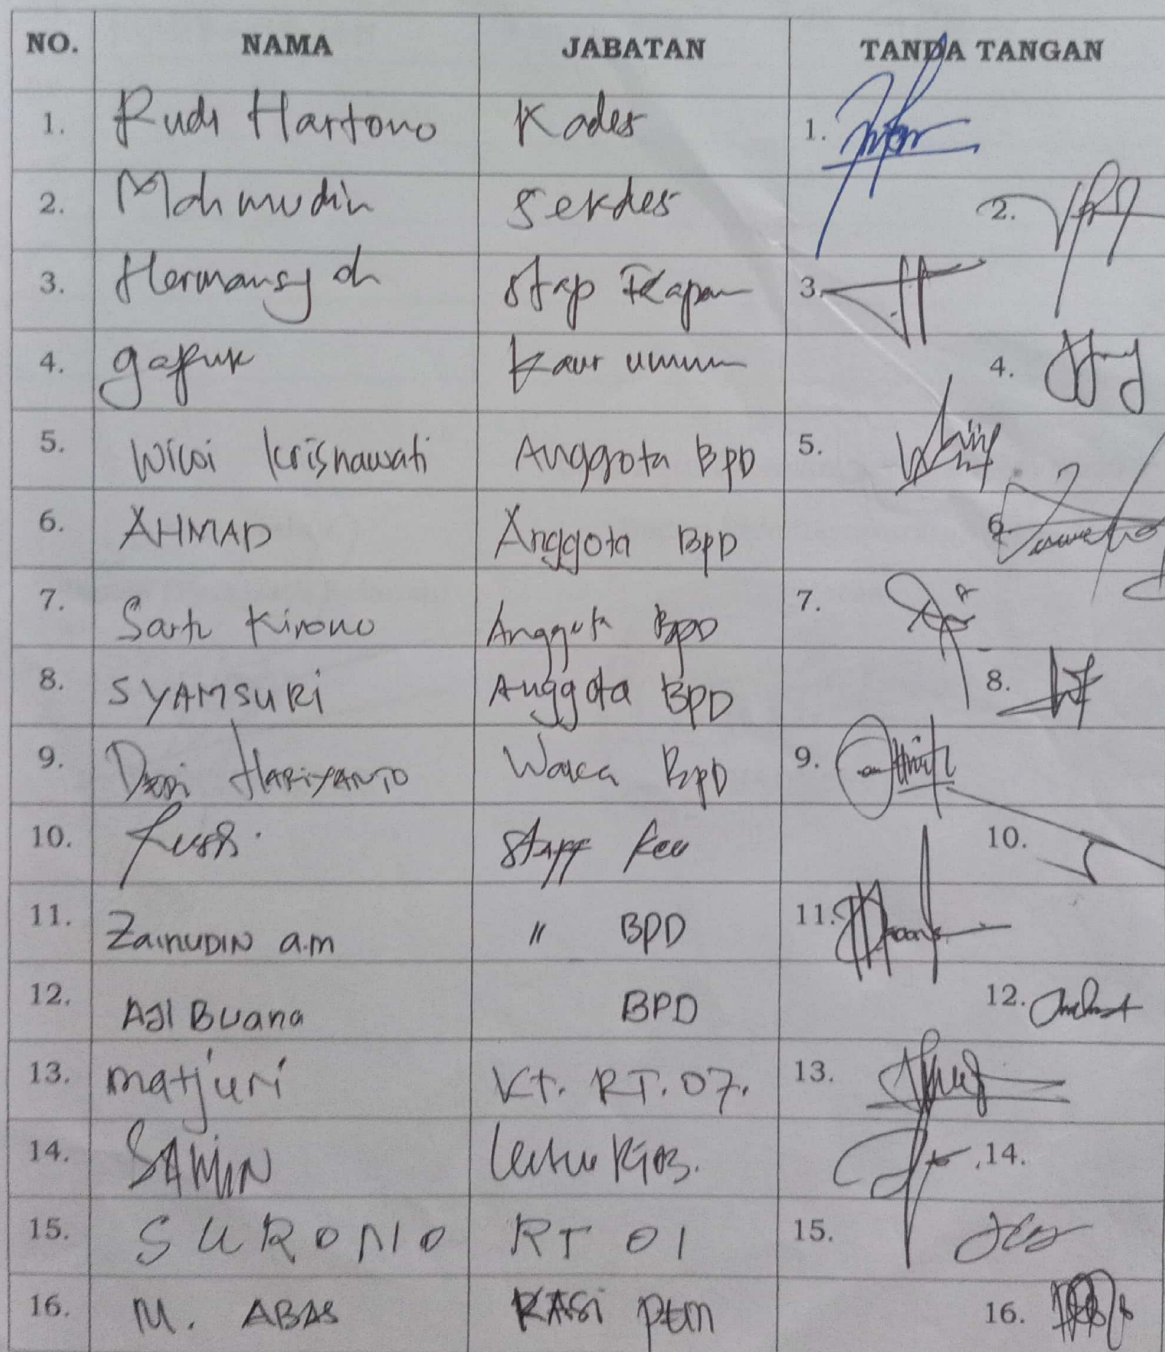 NO. NAMA JABATAN TANDA TANGAN
1. Rudi Hartono Kades 1.
2. Mahmudin Sekdes 2.
3. Hermansyah Stap 3.
4. gafur Kaur umum 4.
5. Wiwi Krisnawati Anggota BPD 5.
6. AHMAD Anggota BPD 6.
7. Kirono Anggota BPD 7.
8. SYAMSURI Anggota BPD 8.
9. HARIYANTO Waka BPD 9.
10. Staff Keu 10.
11. ZAINUDIN a.m " BPD 11.
12. AJI BUana BPD 12.
13. matjuri Kt. RT. 07. 13.
14. SAMIN 14.
15. SURONO RT 01 15.
16. M. ABAS KASi pem 16.